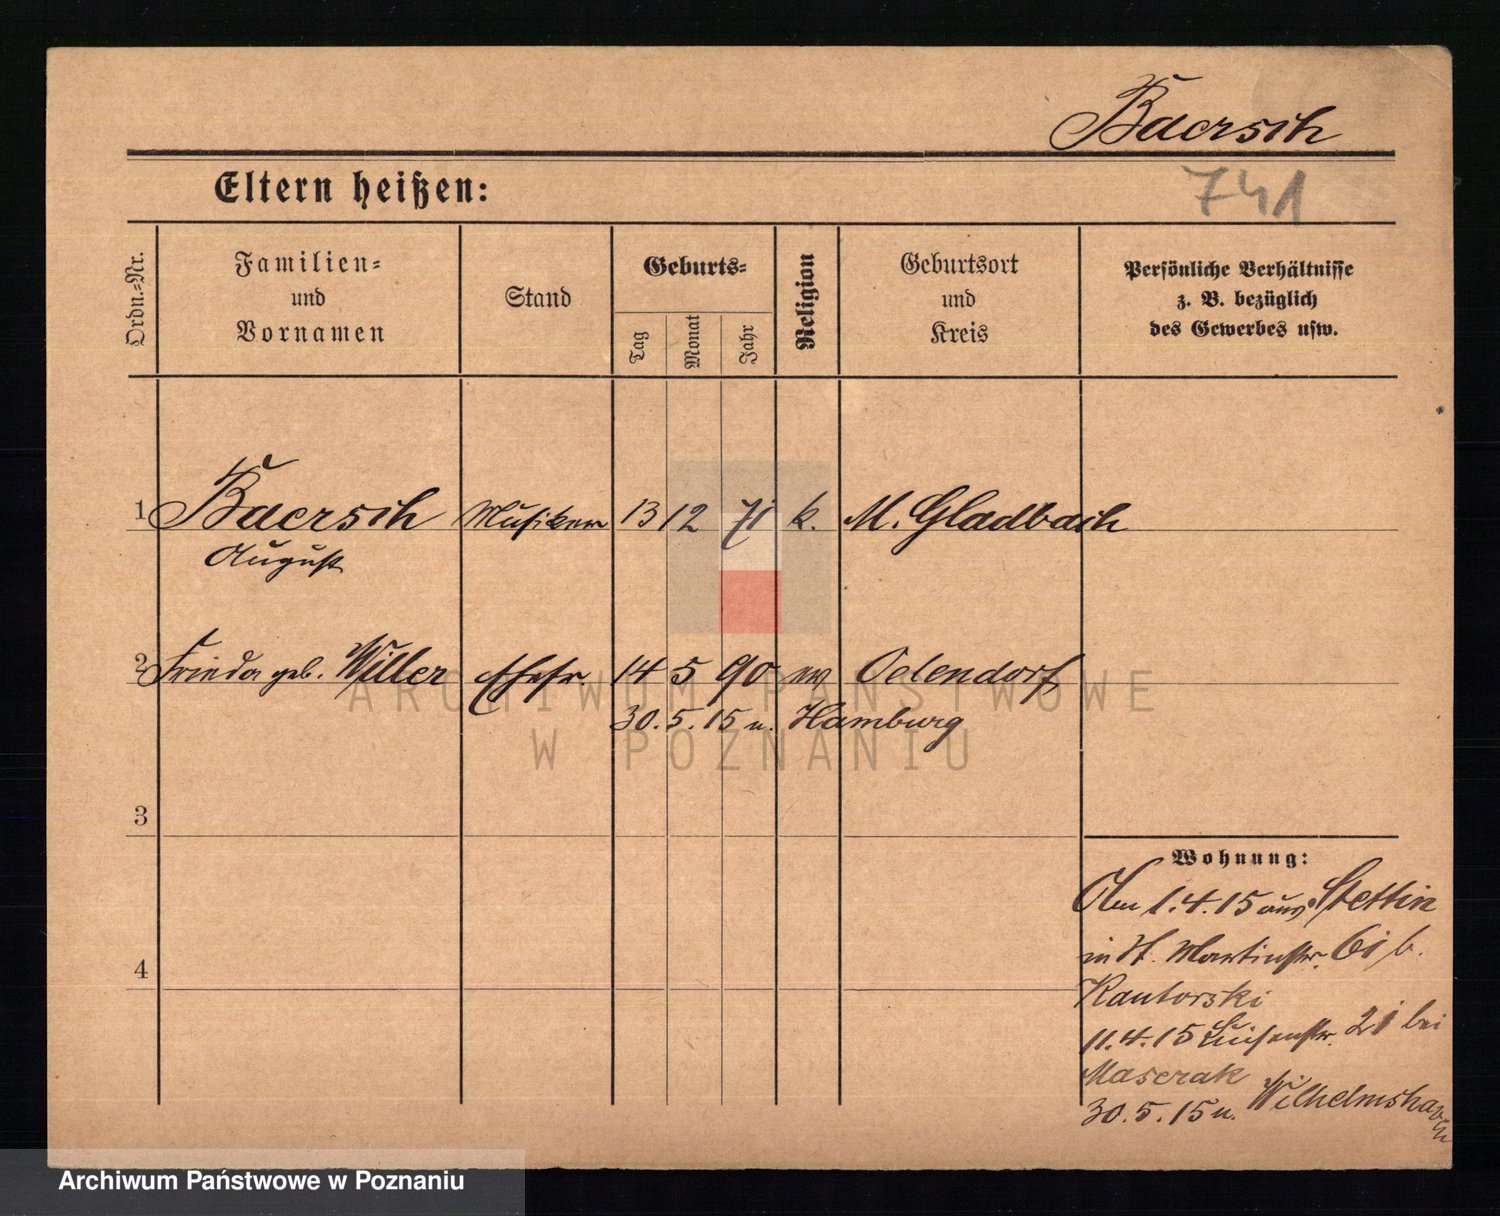 Baersch
741
Eltern heißen:
Ordn.-Nr.
Familien-
und
Vornamen
Stand
Geburts-
Tag
Monat
Jahr
Religion
Geburtsort
und
Kreis
Persönliche Verhältnisse
z. B. bezüglich
des Gewerbes usw.
1 Baersch Musiker 13 12 71 k. M. Gladbach
August
2 Frieda geb. Willer Ehefr. 14 5 90 ev Oelendorf
30.5.15 n. Hamburg
3
4
Wohnung:
Am 1.4.15 aus Stettin
in St. Martinstr. 61 b.
Kantorski
11.4.15 Luisenstr. 21 bei
Maserak
30.5.15 n. Wilhelmshaven
ARCHIWUM PAŃSTWOWE
W POZNANIU
Archiwum Państwowe w Poznaniu